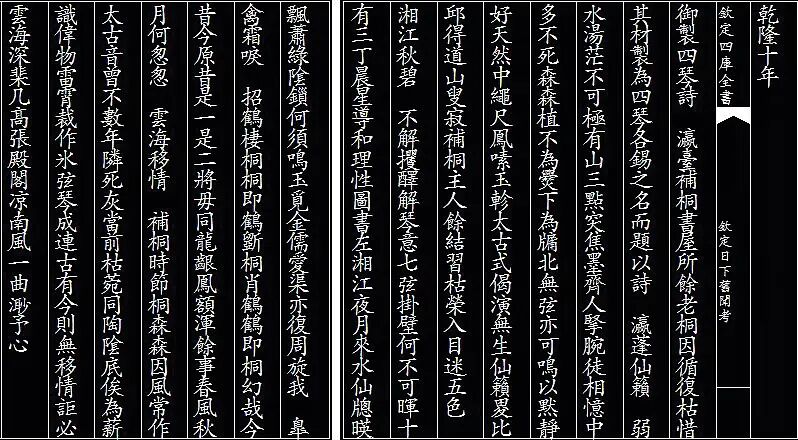 乾隆十年
欽定四庫全書 欽定日下舊聞考
御製四琴詩 瀛臺補桐書屋所餘老桐因循復枯惜
其材製為四琴各錫之名而題以詩 瀛蓬仙籟 弱
水湯茫不可極有山三點突焦墨齊人掔腕徒相憶中
多不死森森植不為爨下為牖北無弦亦可鳴以黙靜
好天然中繩尺鳳嗉玉軫太古式偈演無生仙籟畟比
邱得道山叟寂補桐主人餘結習枯榮入目迷五色
湘江秋碧 不解攫醳解琴意七弦掛壁何不可暉十
有三丁晨星導和理性圖書左湘江夜月來水仙牕暎
飄蕭緑隂鎖何須鳴玉覓金儒愛渠亦復周旋我 臯
禽霜唳 招鶴棲桐桐即鶴斵桐肖鶴鶴即桐幻哉今
昔今原昔是一是二將毋同龍齦鳳額渾餘事春風秋
月何怱怱 雲海移情 補桐時節桐森森因風常作
太古音曾不數年隣死灰當前枯菀同陶隂底俟為薪
識偉物雷霄裁作氷弦琴成連古有今則無移情詎必
雲海深棐几髙張殿閣凉南風一曲渺予心